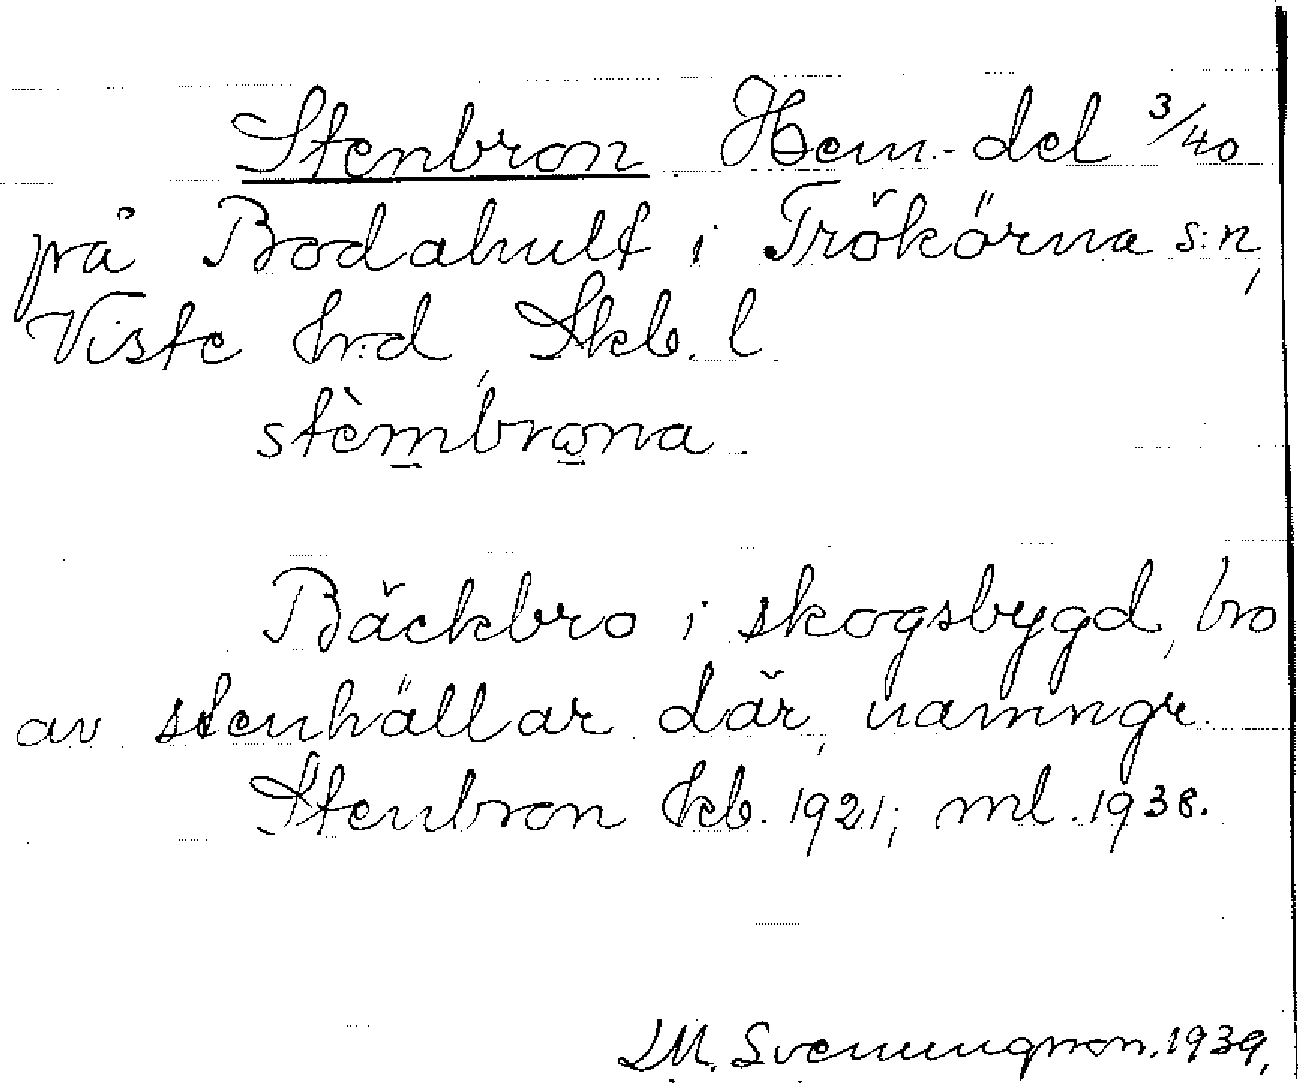 Stenbron Hem.-del 3/40
på Bodahult i Trökörna s:n,
Viste hrd, Skb. l
stèmbrona.
Bäckbro i skogsbygd, bro
av stenhällar där, namngr.
Stenbron kb. 1921; ml. 1938.
LM. Svenungsson. 1939.